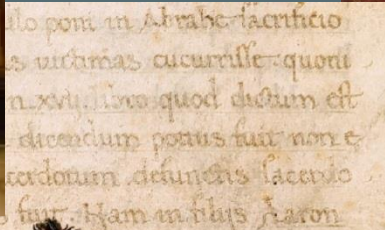 illo poni in Abrahe sacrificio
us victimas cucurrisse quoni
n xvij libro quod dictum est
dicendum potius fuit non e
cerdotum defunctis sacerdo
fuit. Nam in filiis Aaron